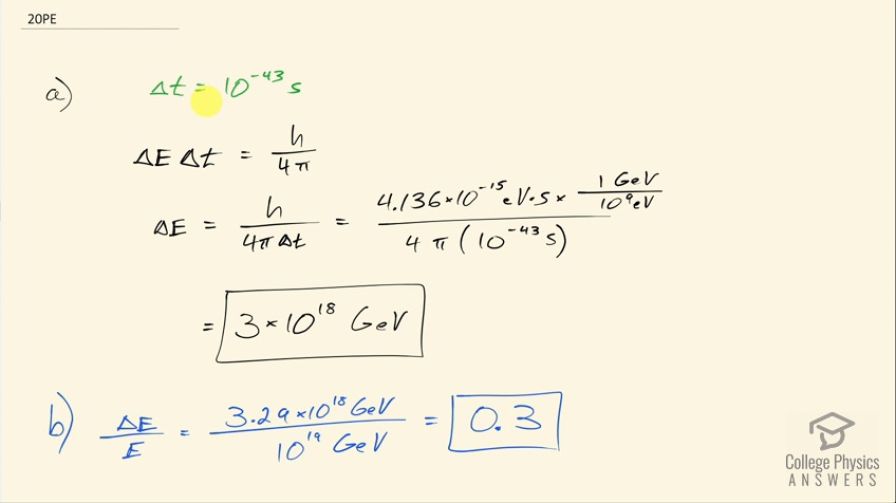 20PE
a) Δt = 10⁻⁴³ s
ΔE Δt = h/4π
ΔE = h/4πΔt = 4.136×10⁻¹⁵ eV·s × 1 GeV/10⁹eV / 4π(10⁻⁴³ s)
= 3×10¹⁸ GeV
b) ΔE/E = 3.29×10¹⁸ GeV/10¹⁹ GeV = 0.3
College Physics
ANSWERS